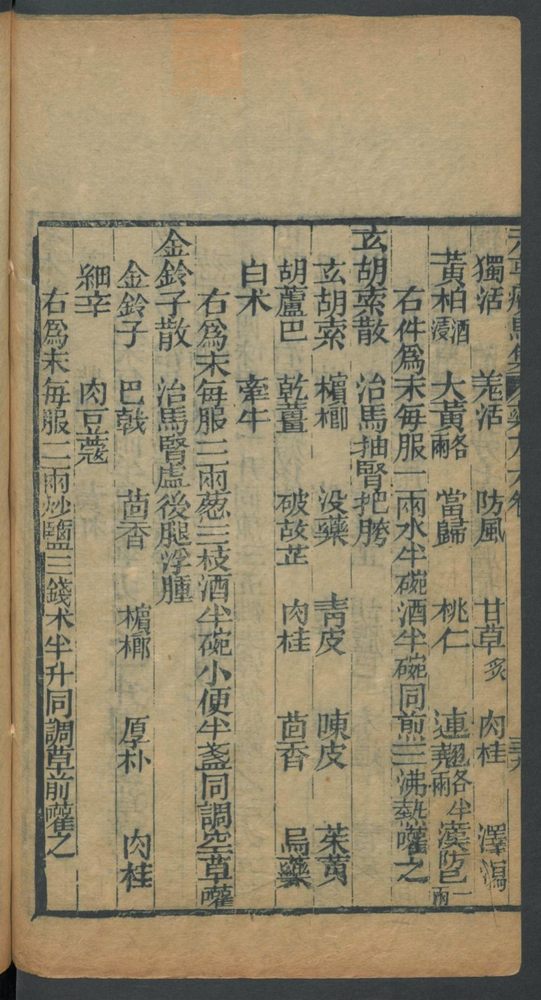 元亨療馬集
獨活 羌活 防風 甘草炙 肉桂 澤瀉
黃柏酒浸 大黃各兩 當歸 桃仁 連翹各半兩 漢防巳一兩
右件為末每服一兩水半碗酒半碗同前三沸熱嚾之
玄胡索散 治馬抽腎把胯
玄胡索 檳榔 没藥 青皮 陳皮 茱萸
胡蘆巴 乾薑 破故芷 肉桂 茴香 烏藥
白术 牽牛
右為末每服三兩葱三枝酒半碗小便半盞同調空草嚾
金鈴子散 治馬腎虛後腿浮腫
金鈴子 巴戟 茴香 檳榔 厚朴 肉桂
細辛 肉豆蔻
右為末每服二兩炒鹽三錢术半升同調草前嚾之